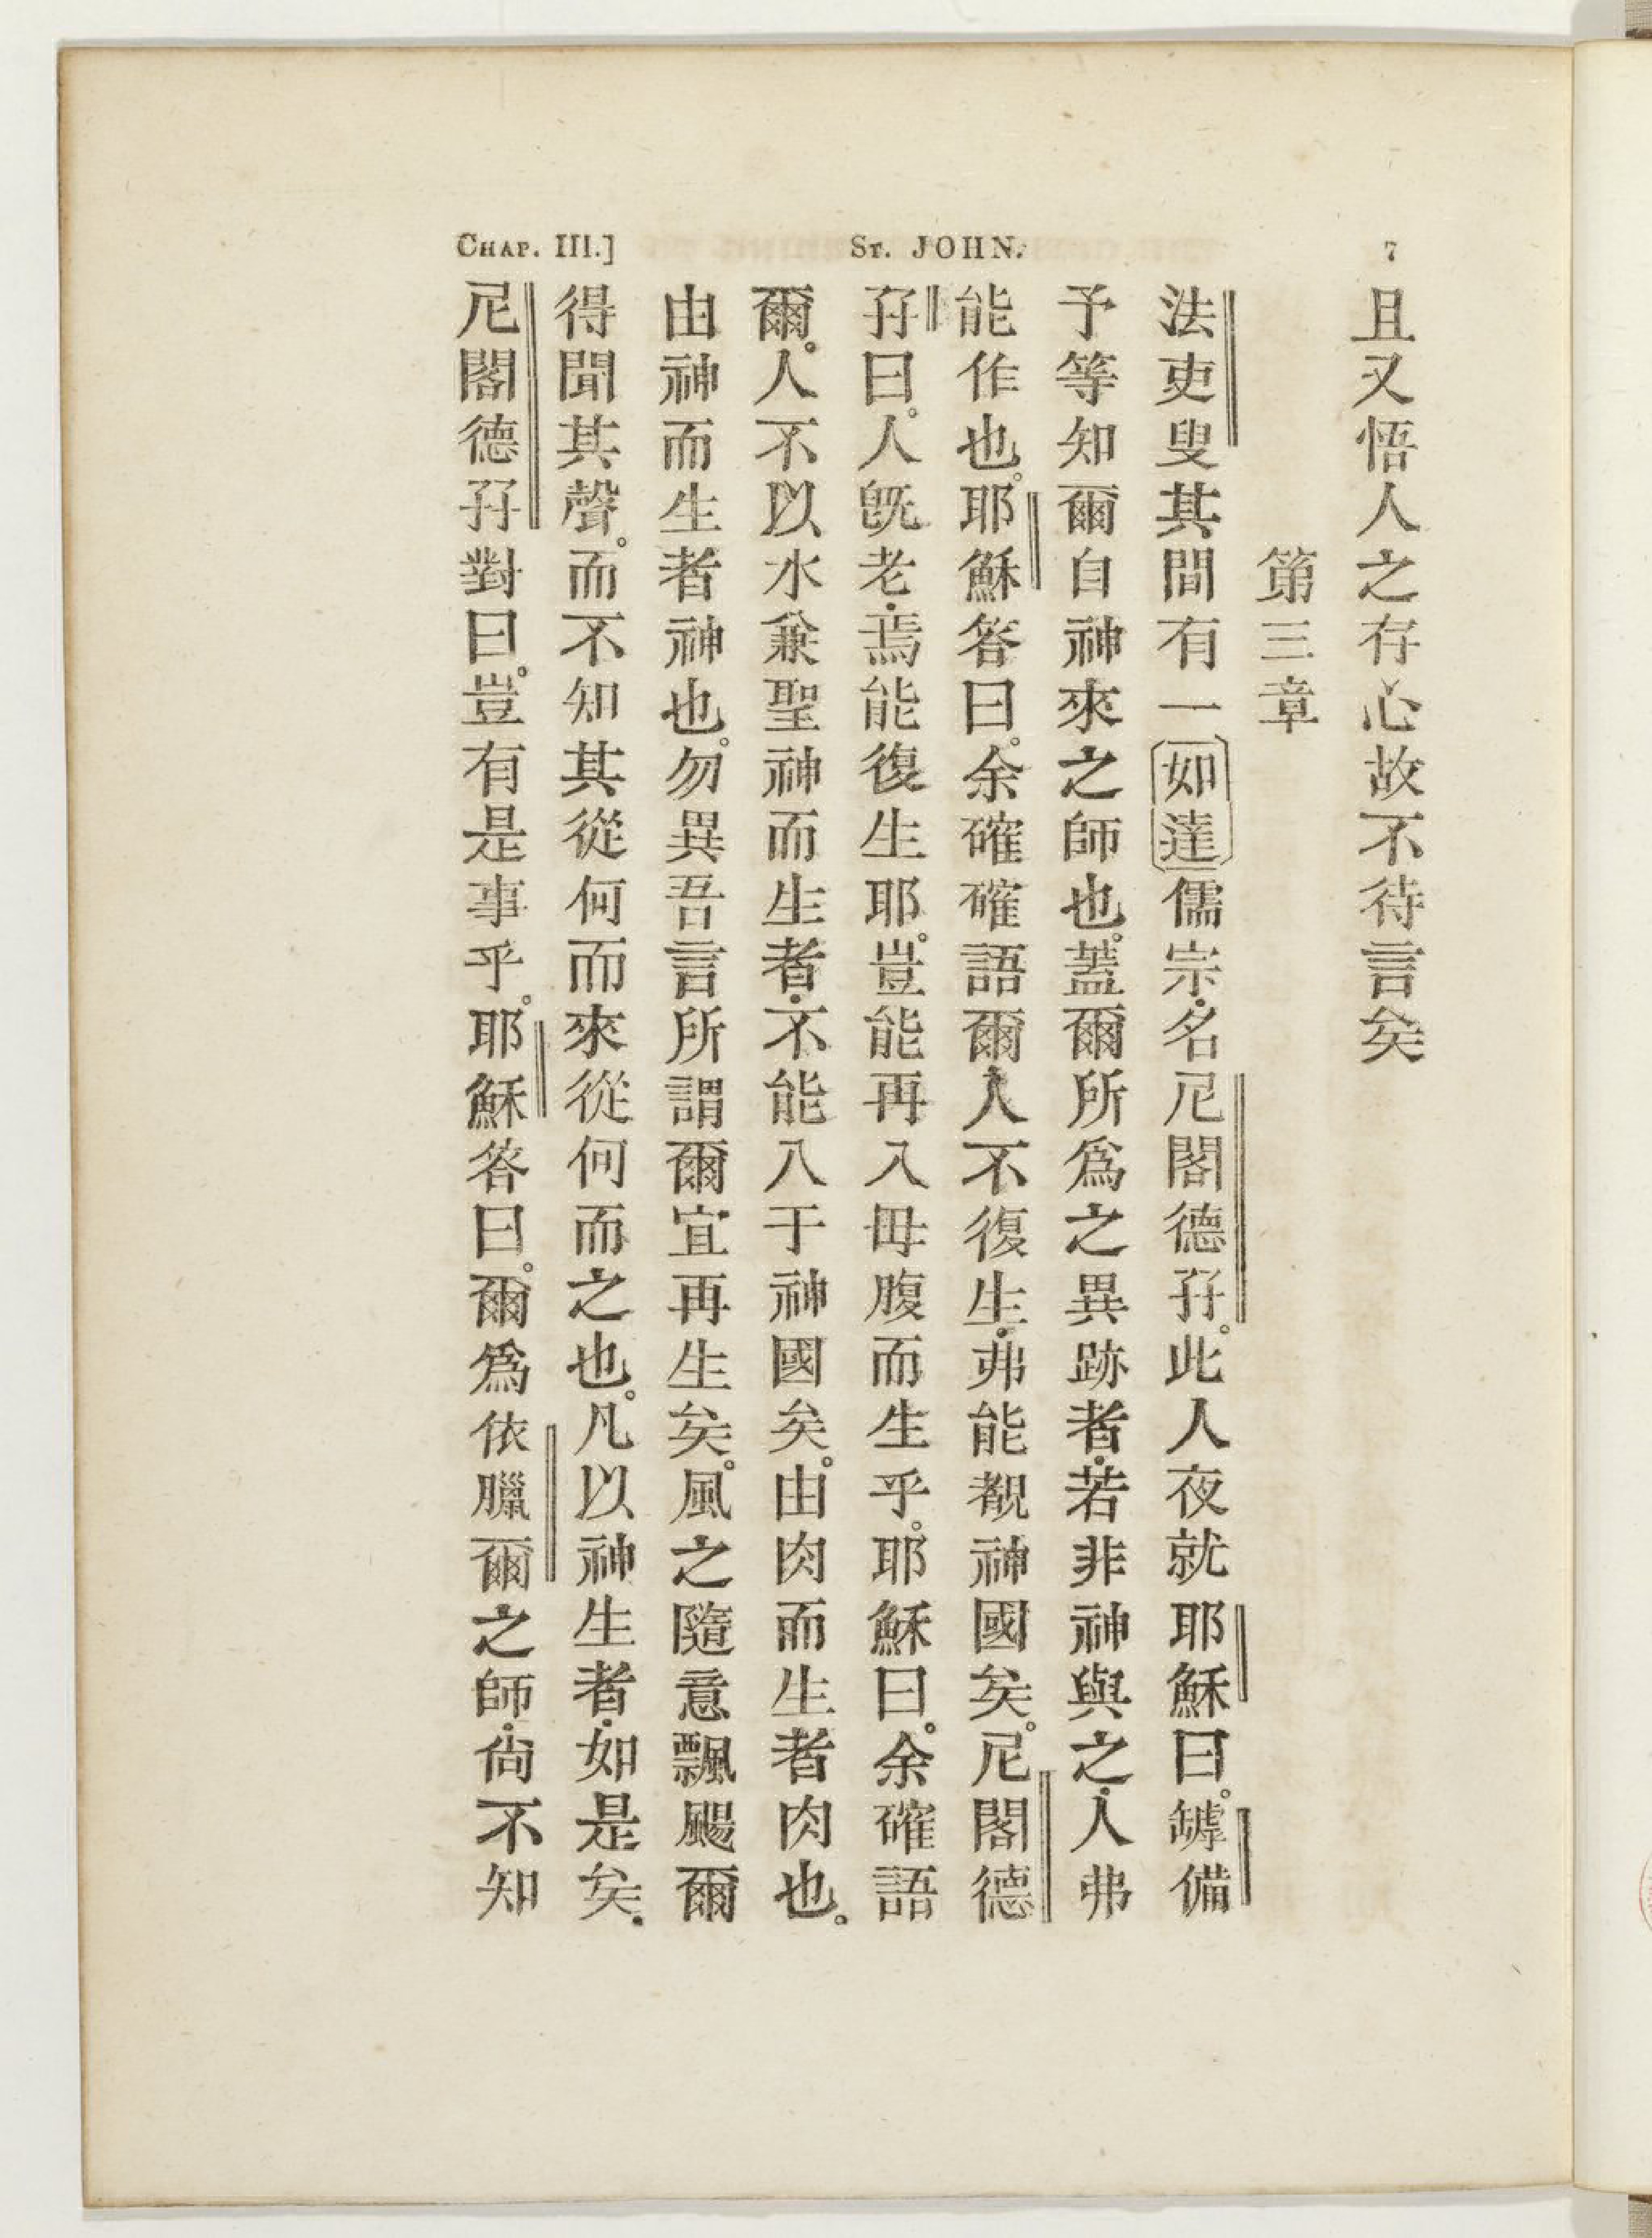 CHAP. III.] ST. JOHN. 7
且又悟人之存心故不待言矣
第三章
法吏叟其間有一如達儒宗名尼閣德孖。此人夜就耶穌曰。罅備
予等知爾自神來之師也。蓋爾所爲之異跡者若非神與之人弗
能作也。耶穌答曰。余確確語爾人不復生弗能覩神國矣。尼閣德
孖曰。人既老焉能復生耶。豈能再入毋腹而生乎。耶穌曰。余確語
爾。人不以水兼聖神而生者不能入于神國矣。由肉而生者肉也。
由神而生者神也。勿異吾言所謂爾宜再生矣。風之隨意飄颺爾
得聞其聲。而不知其從何而來從何而之也。凡以神生者如是矣
尼閣德孖對曰。豈有是事乎。耶穌答曰。爾爲依臘爾之師尙不知